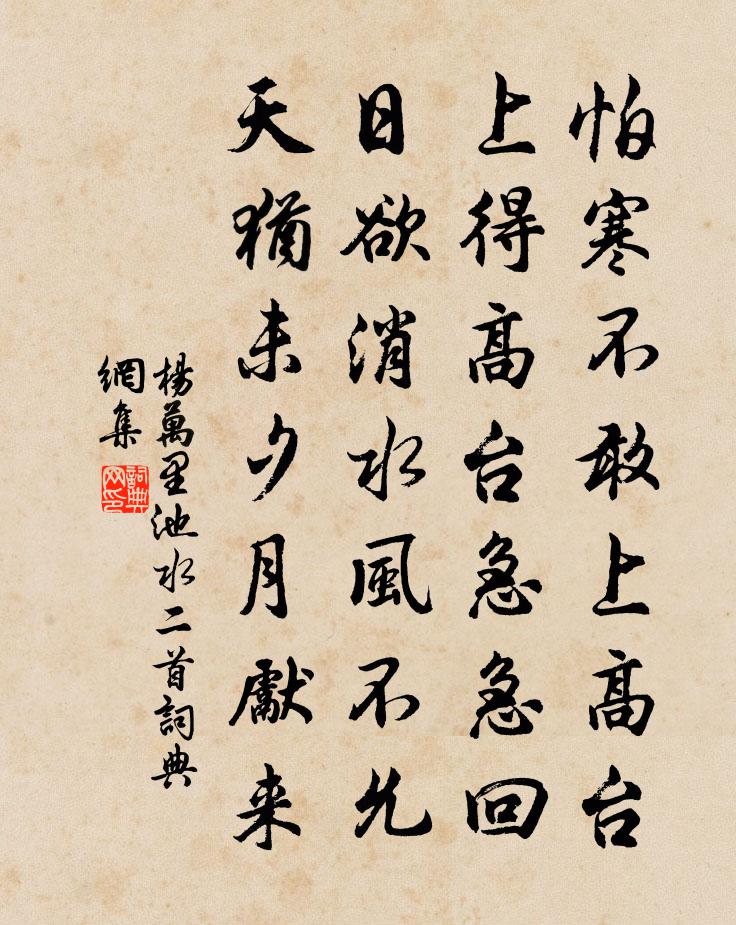 怕寒不敢上高台
上得高台急急回
日欲消水風不允
天猶未夕月獻来
楊萬里池水二首詞典
網集
詞典
网